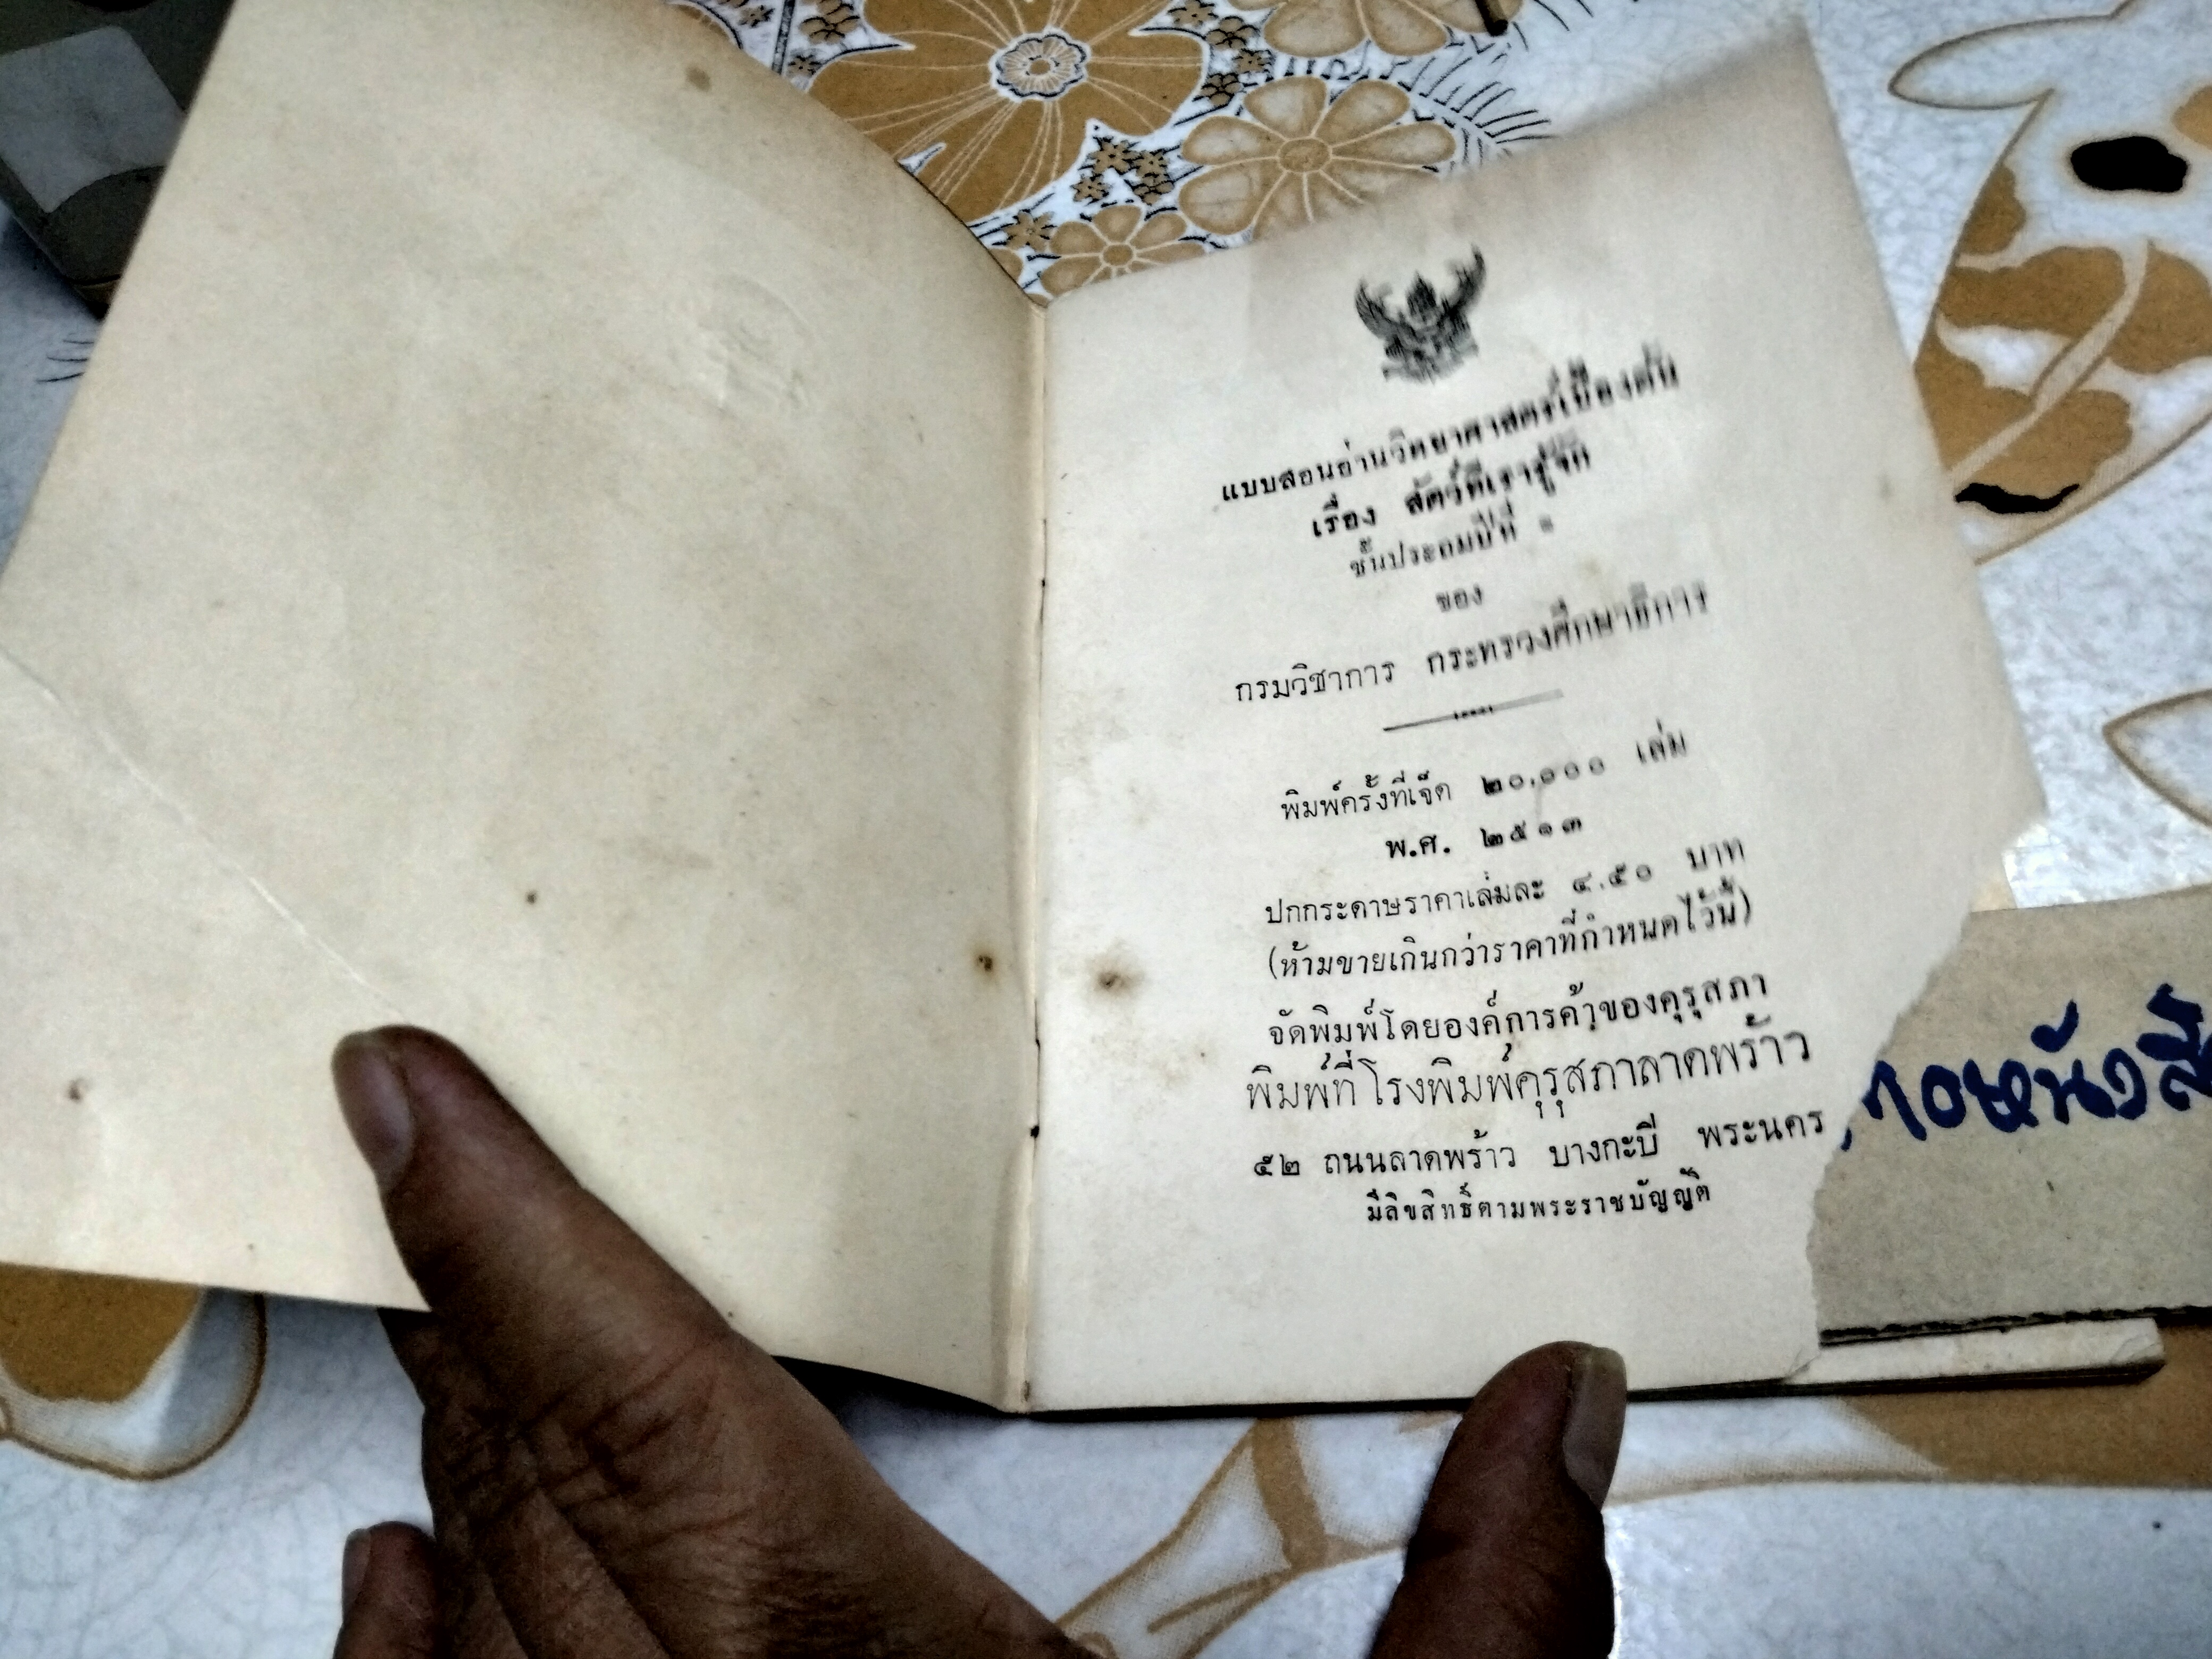 แบบสอนอ่านวิทยาศาสตร์เบื้องต้น
เรื่อง สัตว์ที่เรารู้จัก
ชั้นประถมปีที่
ของ
กรมวิชาการ กระทรวงศึกษาธิการ
พิมพ์ครั้งที่เจ็ด ๒๐,๐๐๐ เล่ม
พ.ศ. ๒๕๑๓
ปกกระดาษราคาเล่มละ ๔.๕๐ บาท
(ห้ามขายเกินกว่าราคาที่กำหนดไว้นี้)
จัดพิมพ์โดยองค์การค้าของคุรุสภา
พิมพ์ที่โรงพิมพ์คุรุสภาลาดพร้าว
๕๒ ถนนลาดพร้าว บางกะปี พระนคร
มีลิขสิทธิ์ตามพระราชบัญญัติ